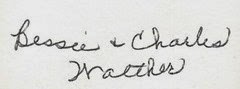 Bessie & Charles
Walther